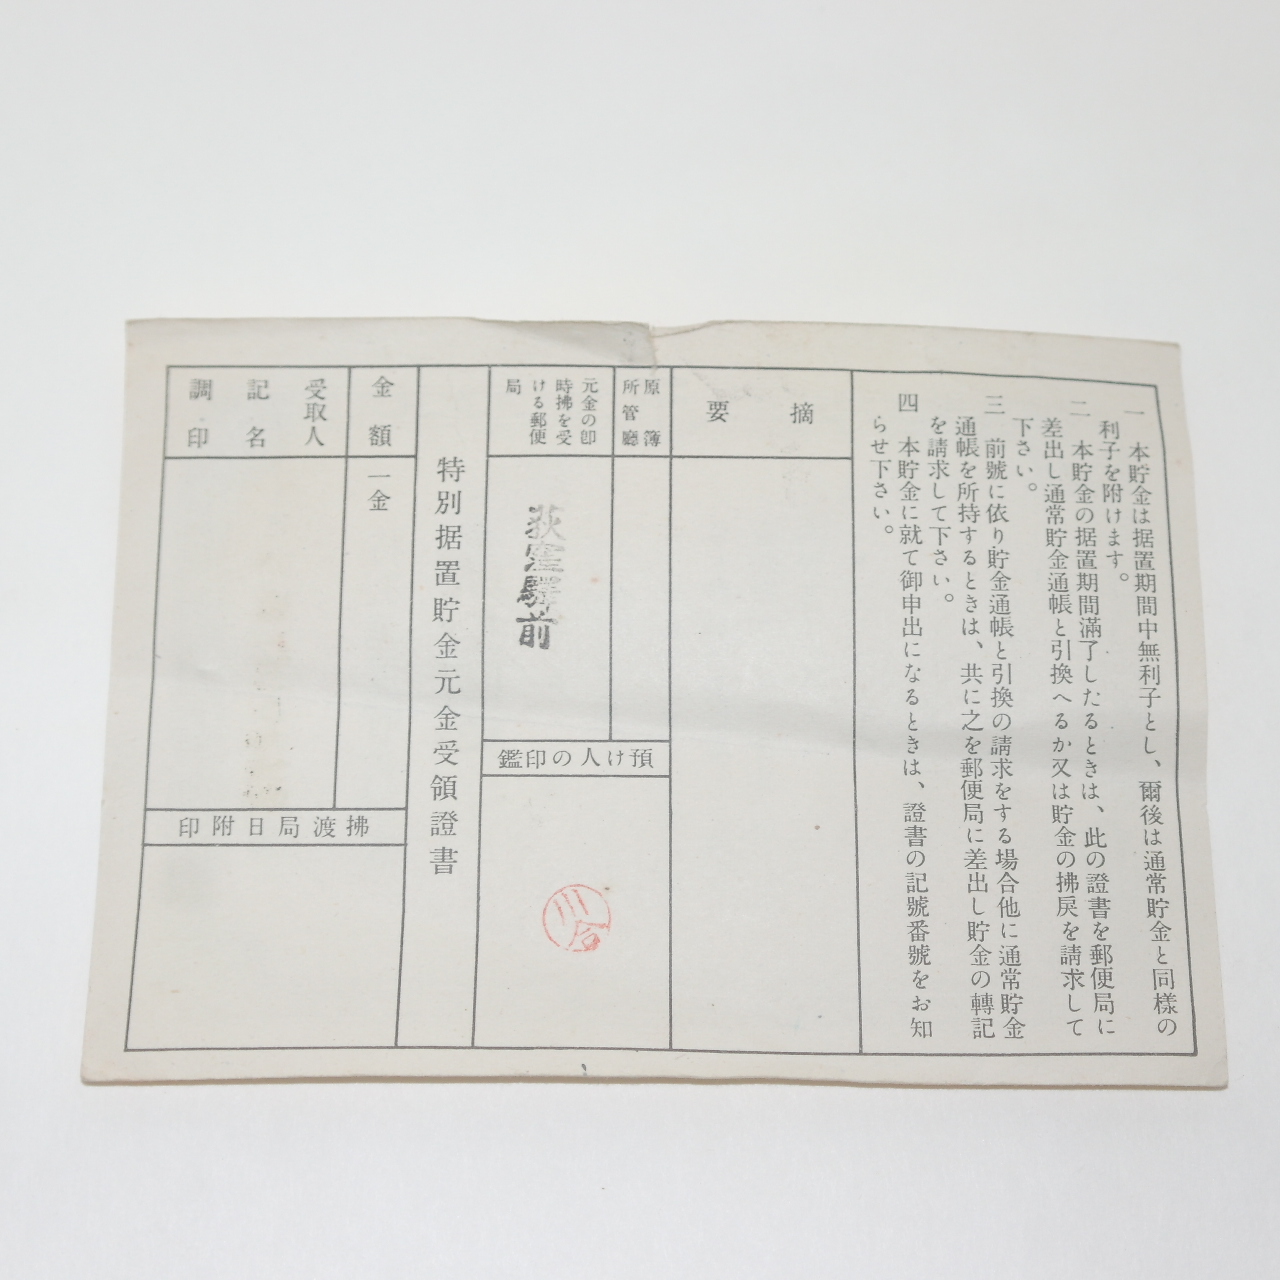 一 本貯金は据置期間中無利子とし、爾後は通常貯金と同様の
利子を附けます。
二 本貯金の据置期間滿了したるときは、此の證書を郵便局に
差出し通常貯金通帳と引換へるか又は貯金の拂戻を請求して
下さい。
三 前號に依り貯金通帳と引換の請求をする場合他に通常貯金
通帳を所持するときは、共に之を郵便局に差出し貯金の轉記
を請求して下さい。
四 本貯金に就て御申出になるときは、證書の記號番號をお知
らせ下さい。
摘要
原簿
所管廳
元金の卽
時拂を受
ける郵便
局
荻窪驛前
預け人の印鑑
川合
特別据置貯金元金受領證書
金額
一金
受取人
記名
調印
拂渡局日附印